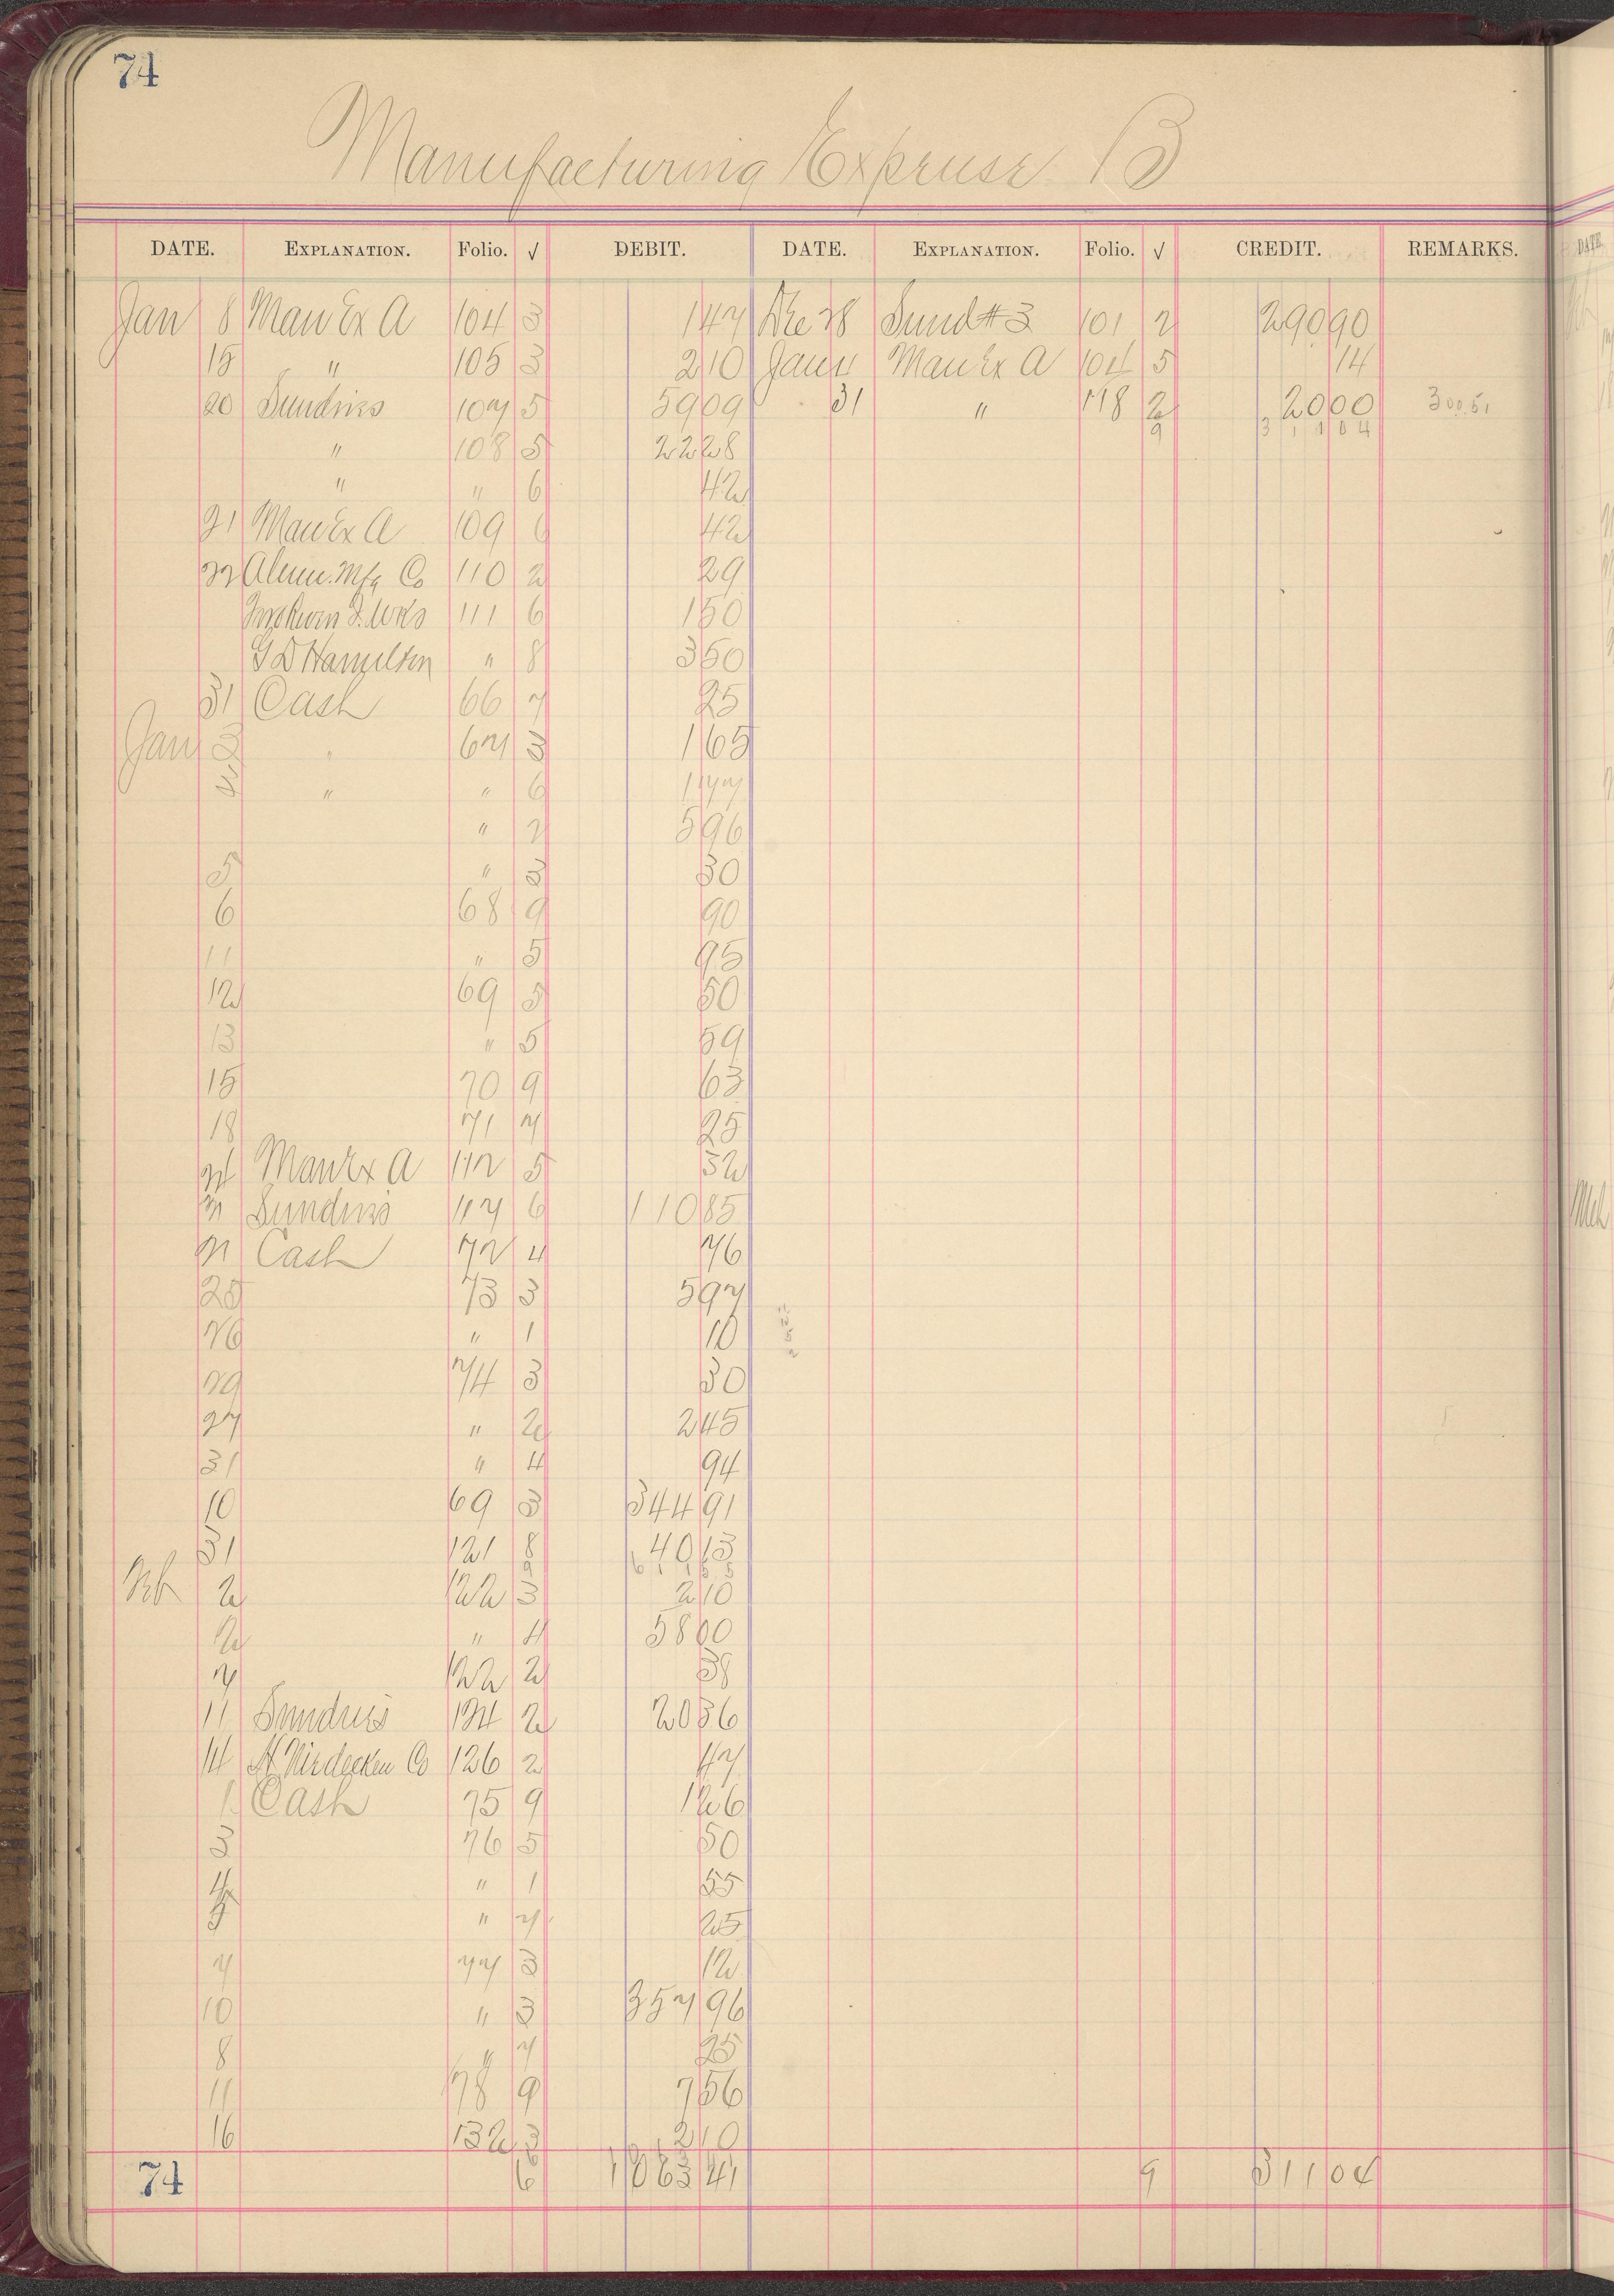 74
Manufacturing Expense B
DATE. EXPLANATION. Folio. √ DEBIT. DATE. EXPLANATION. Folio. √ CREDIT. REMARKS.
Jan 8 Man Ex A 104 3 1 47 Dec 28 Sund #3 101 2 290 90
15 " 105 3 2 10 Jan 4 Man Ex A 104 5 14
20 Sundries 107 5 59 09 31 " 118 2 20 00 300.51
" 108 5 22 28 9 311 04
" " 6 42
21 Man Ex A 109 6 42
22 Alum. Mfg Co 110 2 29
111 6 1 50
G D Hamilton " 8 3 50
31 Cash 66 7 25
Jan 3 67 3 1 65
4 " " 6 1 77
" 2 5 96
5 " 3 30
6 68 9 90
11 " 5 95
12 69 5 50
13 " 5 59
15 70 9 63
18 71 7 25
24 Man Ex A 112 5 32
31 Sundries 117 6 110 85
21 Cash 72 4 76
25 73 3 5 97
26 " 1 10
29 74 3 30
27 " 2 2 45
31 " 4 94
10 69 3 344 91
31 121 8 40 13
9 611 55
Feb 2 122 3 2 10
2 " 4 58 00
7 122 2 38
11 Sundries 124 2 20 36
14 126 2 47
1 Cash 75 9 1 26
3 76 5 50
4 " 1 55
5 " 7 25
7 77 3 12
10 " 3 357 96
8 " 7 25
11 78 9 7 56
16 132 3 2 10
74 6 1063 41 9 311 04